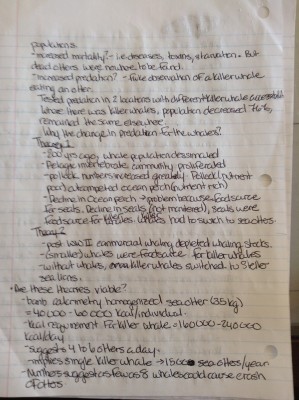 populations.
- increased mortality? - i.e. diseases, toxins, starvation. But
dead otters were nowhere to be found.
- increased predation? - first observation of a killer whale
eating an otter.
Tested predation in 2 locations with different killer whale accessibility
Where there was killer whales, population decreased 76%,
remained the same elsewhere.
Why the change in predation for the whales?
Theory 1
- 200 yrs ago, whale population decimated
- Pelagic invertebrate community proliferated
- pollock numbers increased greatly. Pollock (nutrient
poor) outcompeted ocean perch (nutrient rich)
- Decline in Ocean perch → problem because food source
for seals. Decline in seals (not monitered), seals were
food source for killer whales. Whales had to switch to sea otters
Theory 2
- post WWII commercial whaling depleted whaling stocks.
- (smaller) whales were food source for killer whales
- without whales, killer whales switched to
sea lions.
• Are these theories viable?
- bomb calorimetry homogenized sea otter (35kg)
= 40000 - 60 000 kcal/individual.
- kcal requirement for killer whale = 160000 - 240000
kcal/day
- suggests 4 to 6 otters a day.
- implies single killer whale → 1500 sea otters/year
- Numbers suggest as few as 8 whales could cause crash
of otters